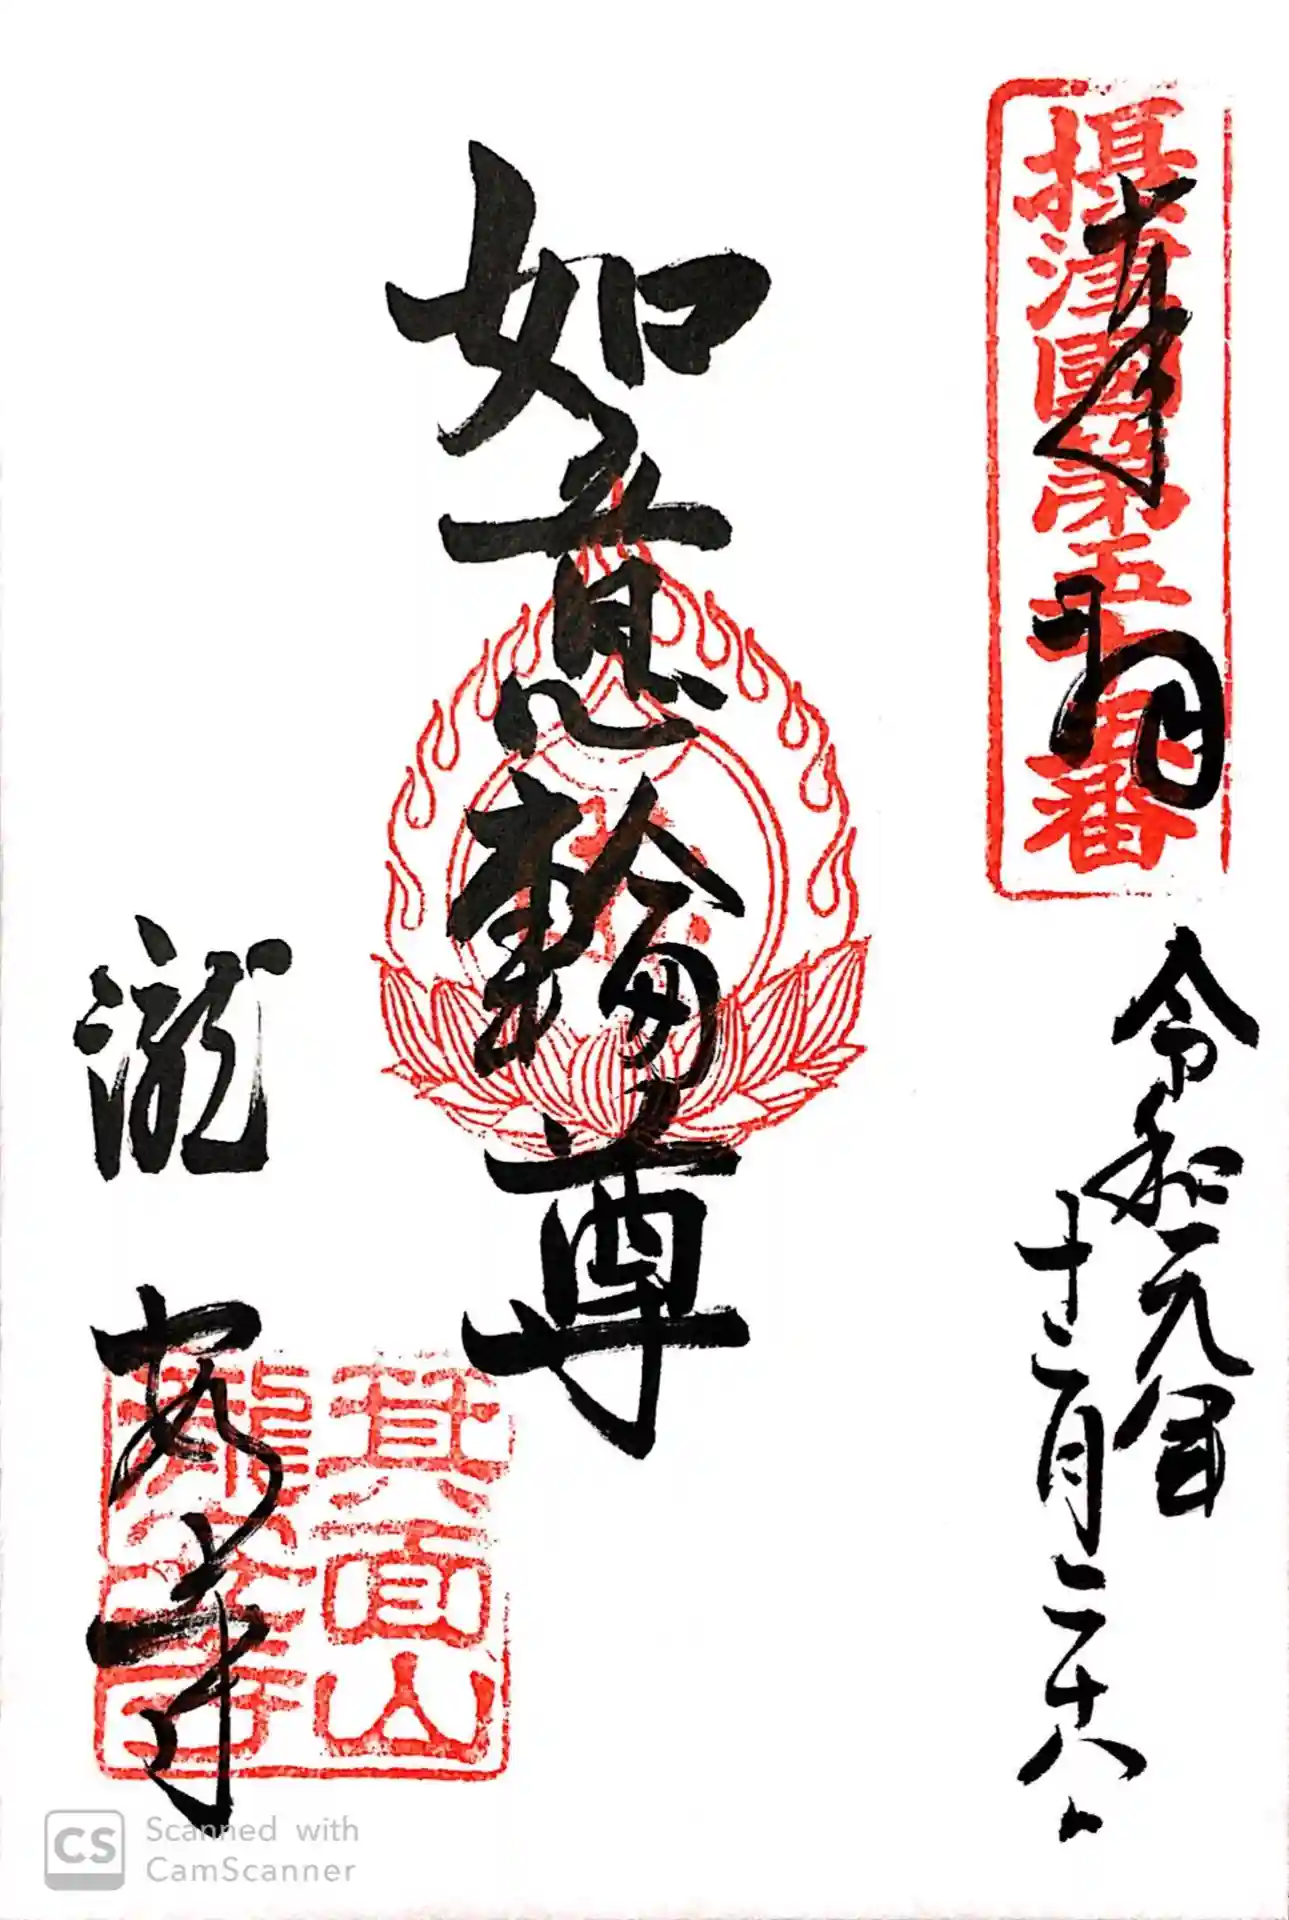 摂津國第五十五番
奉拝
令和元年
十二月二十八日
如意輪尊
瀧安寺
箕面山
瀧安寺
CS
Scanned with
CamScanner